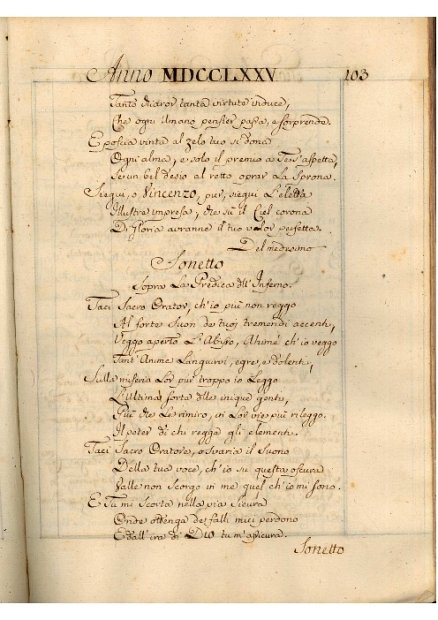 Anno MDCCLXXV 103
Tanto d'ardor tanta virtute induce,
Che ogni umano pensier passa, e sorprende.
E poscia vinta al zelo tuo si dona
Ogni alma, e solo il premio a Te s'aspetta,
Se un bel desio al retto oprar La sprona.
Siegui, o Vincenzo, pur, siegui L'eletta
Illustre impresa, che su il Ciel corona
Di gloria avranne il tuo valor perfetta.
Del medesimo
Sonetto
Sopra La Predica dell' Inferno.
Taci Sacro Orator, ch'io più non reggo
Al forte Suon de' tuoi tremendi accenti,
Veggo aperto L'Abisso, Ahimè ch'io veggo
Tant' Anime Languirvi, egre, e dolenti,
Sulla miseria Lor pur troppo io Leggo
L'ultima sorte delle inique genti,
Più che Le rimiro, in Lor vie più rileggo.
Il poter di chi regge gli elementi.
Taci Sacro Oratore, o svaria il Suono
Della tua voce, ch'io su questa oscura
Valle non Scorgo in me quel ch'io mi sono.
E Tu mi Scorta nella via Sicura
Onde ottenga de' falli miei perdono
E dall' ira di DIO tu m'assicura.
Sonetto